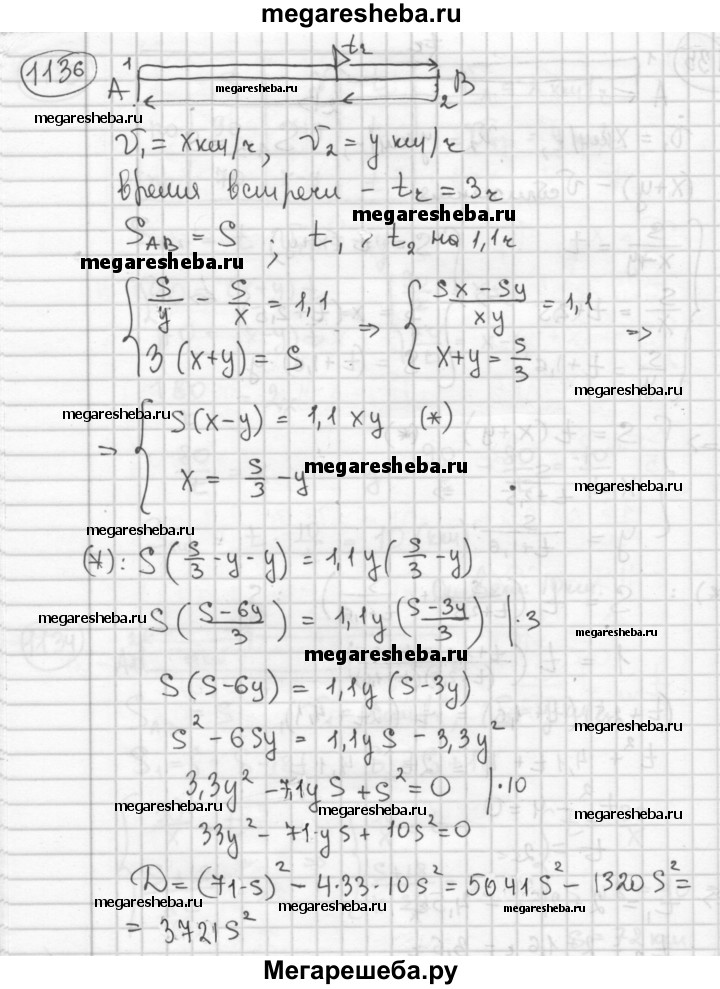 megaresheba.ru
1136
1
t₂
A
megaresheba.ru
2
B
megaresheba.ru
V₁ = x км/ч, V₂ = y км/ч
время встречи – tч = 3ч
megaresheba.ru
S_AB = S ; t₁ < t₂ на 1,1ч
megaresheba.ru
{ S/y – S/x = 1,1 => { (Sx – Sy)/xy = 1,1 =>
{ 3 (x+y) = S { x+y = S/3
megaresheba.ru
megaresheba.ru
=> { S(x–y) = 1,1 xy (*)
megaresheba.ru
{ x = S/3 – y
megaresheba.ru
megaresheba.ru
(*): S(S/3 – y – y) = 1,1y(S/3 – y)
megaresheba.ru
S((S–6y)/3) = 1,1y((S–3y)/3) |·3
megaresheba.ru
megaresheba.ru
S(S–6y) = 1,1y (S–3y)
S² – 6Sy = 1,1y S – 3,3y²
megaresheba.ru
3,3y² – 7,1y S + S² = 0 |·10
megaresheba.ru
megaresheba.ru
33y² – 71·yS + 10S² = 0
D = (71·S)² – 4·33·10S² = 5041S² – 1320S² =
megaresheba.ru
megaresheba.ru
= 3721S²
Мегарешеба.ру